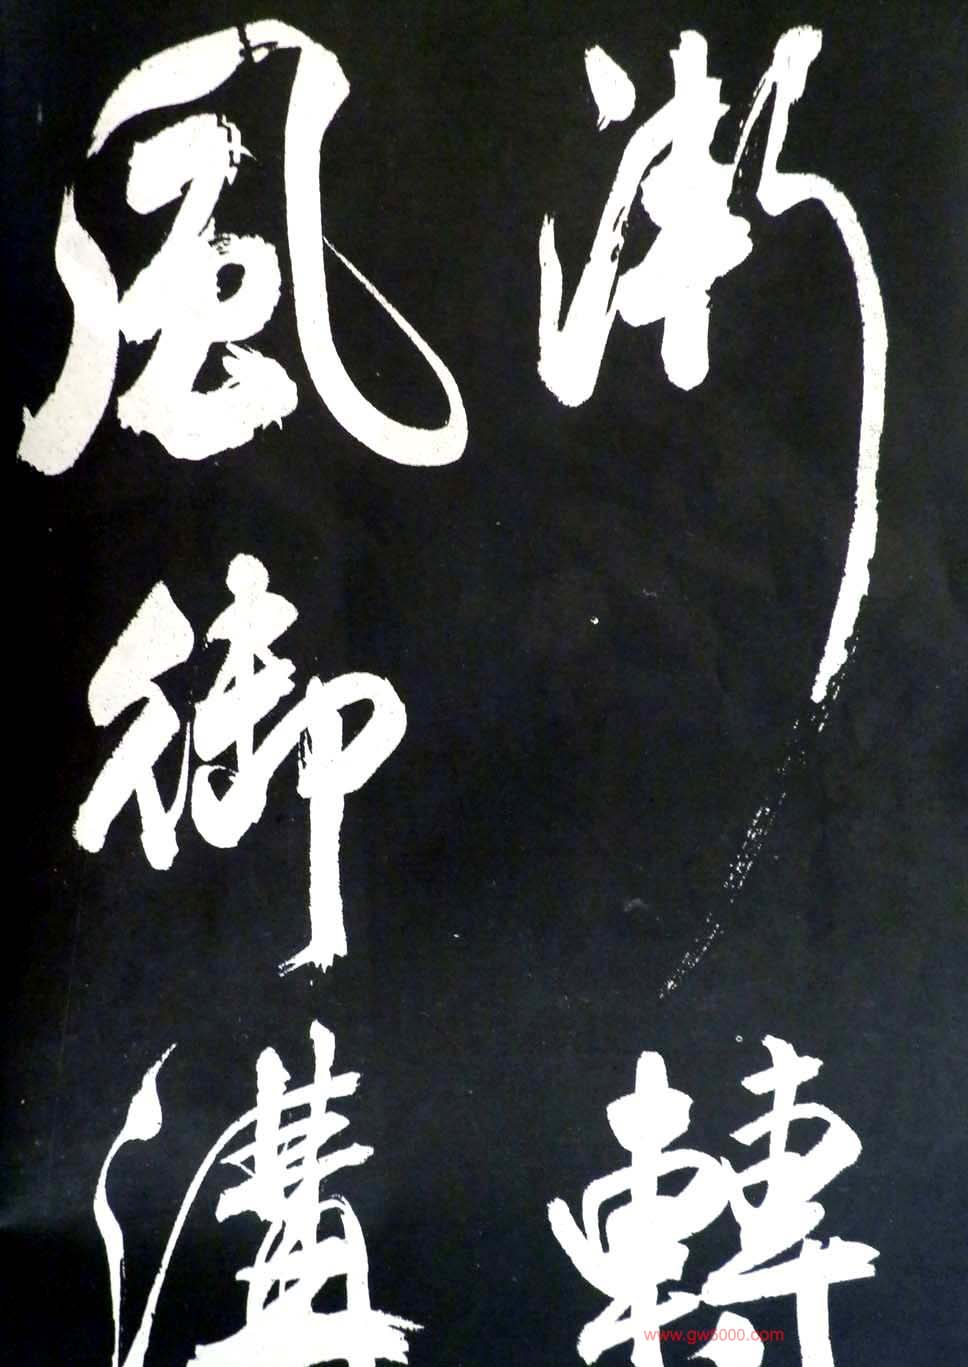 漸轉
風御溝
www.gw5000.com